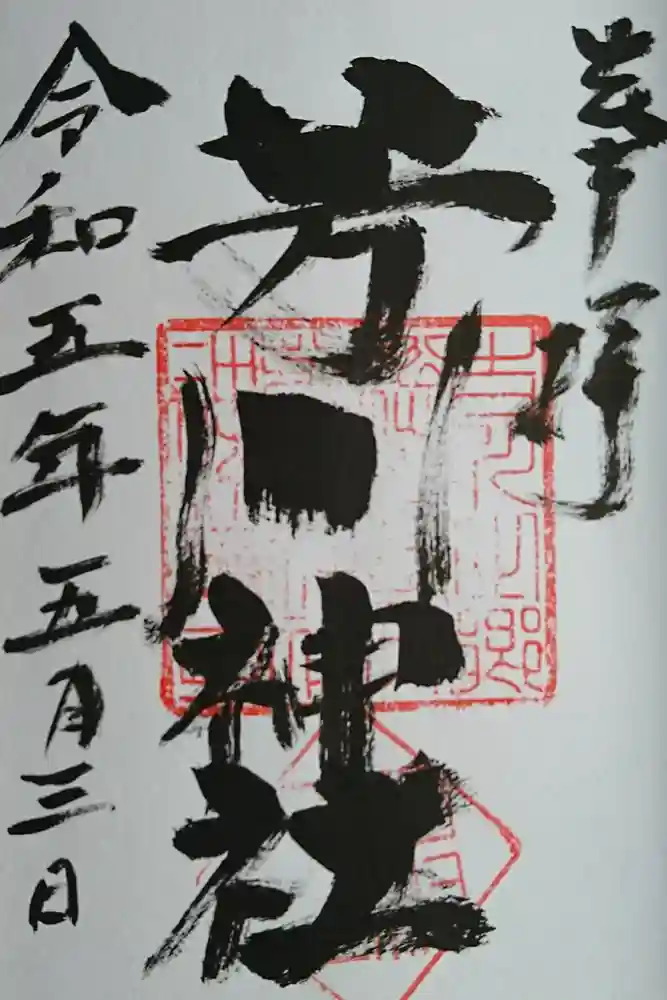 奉拝
芳川神社
令和五年五月三日